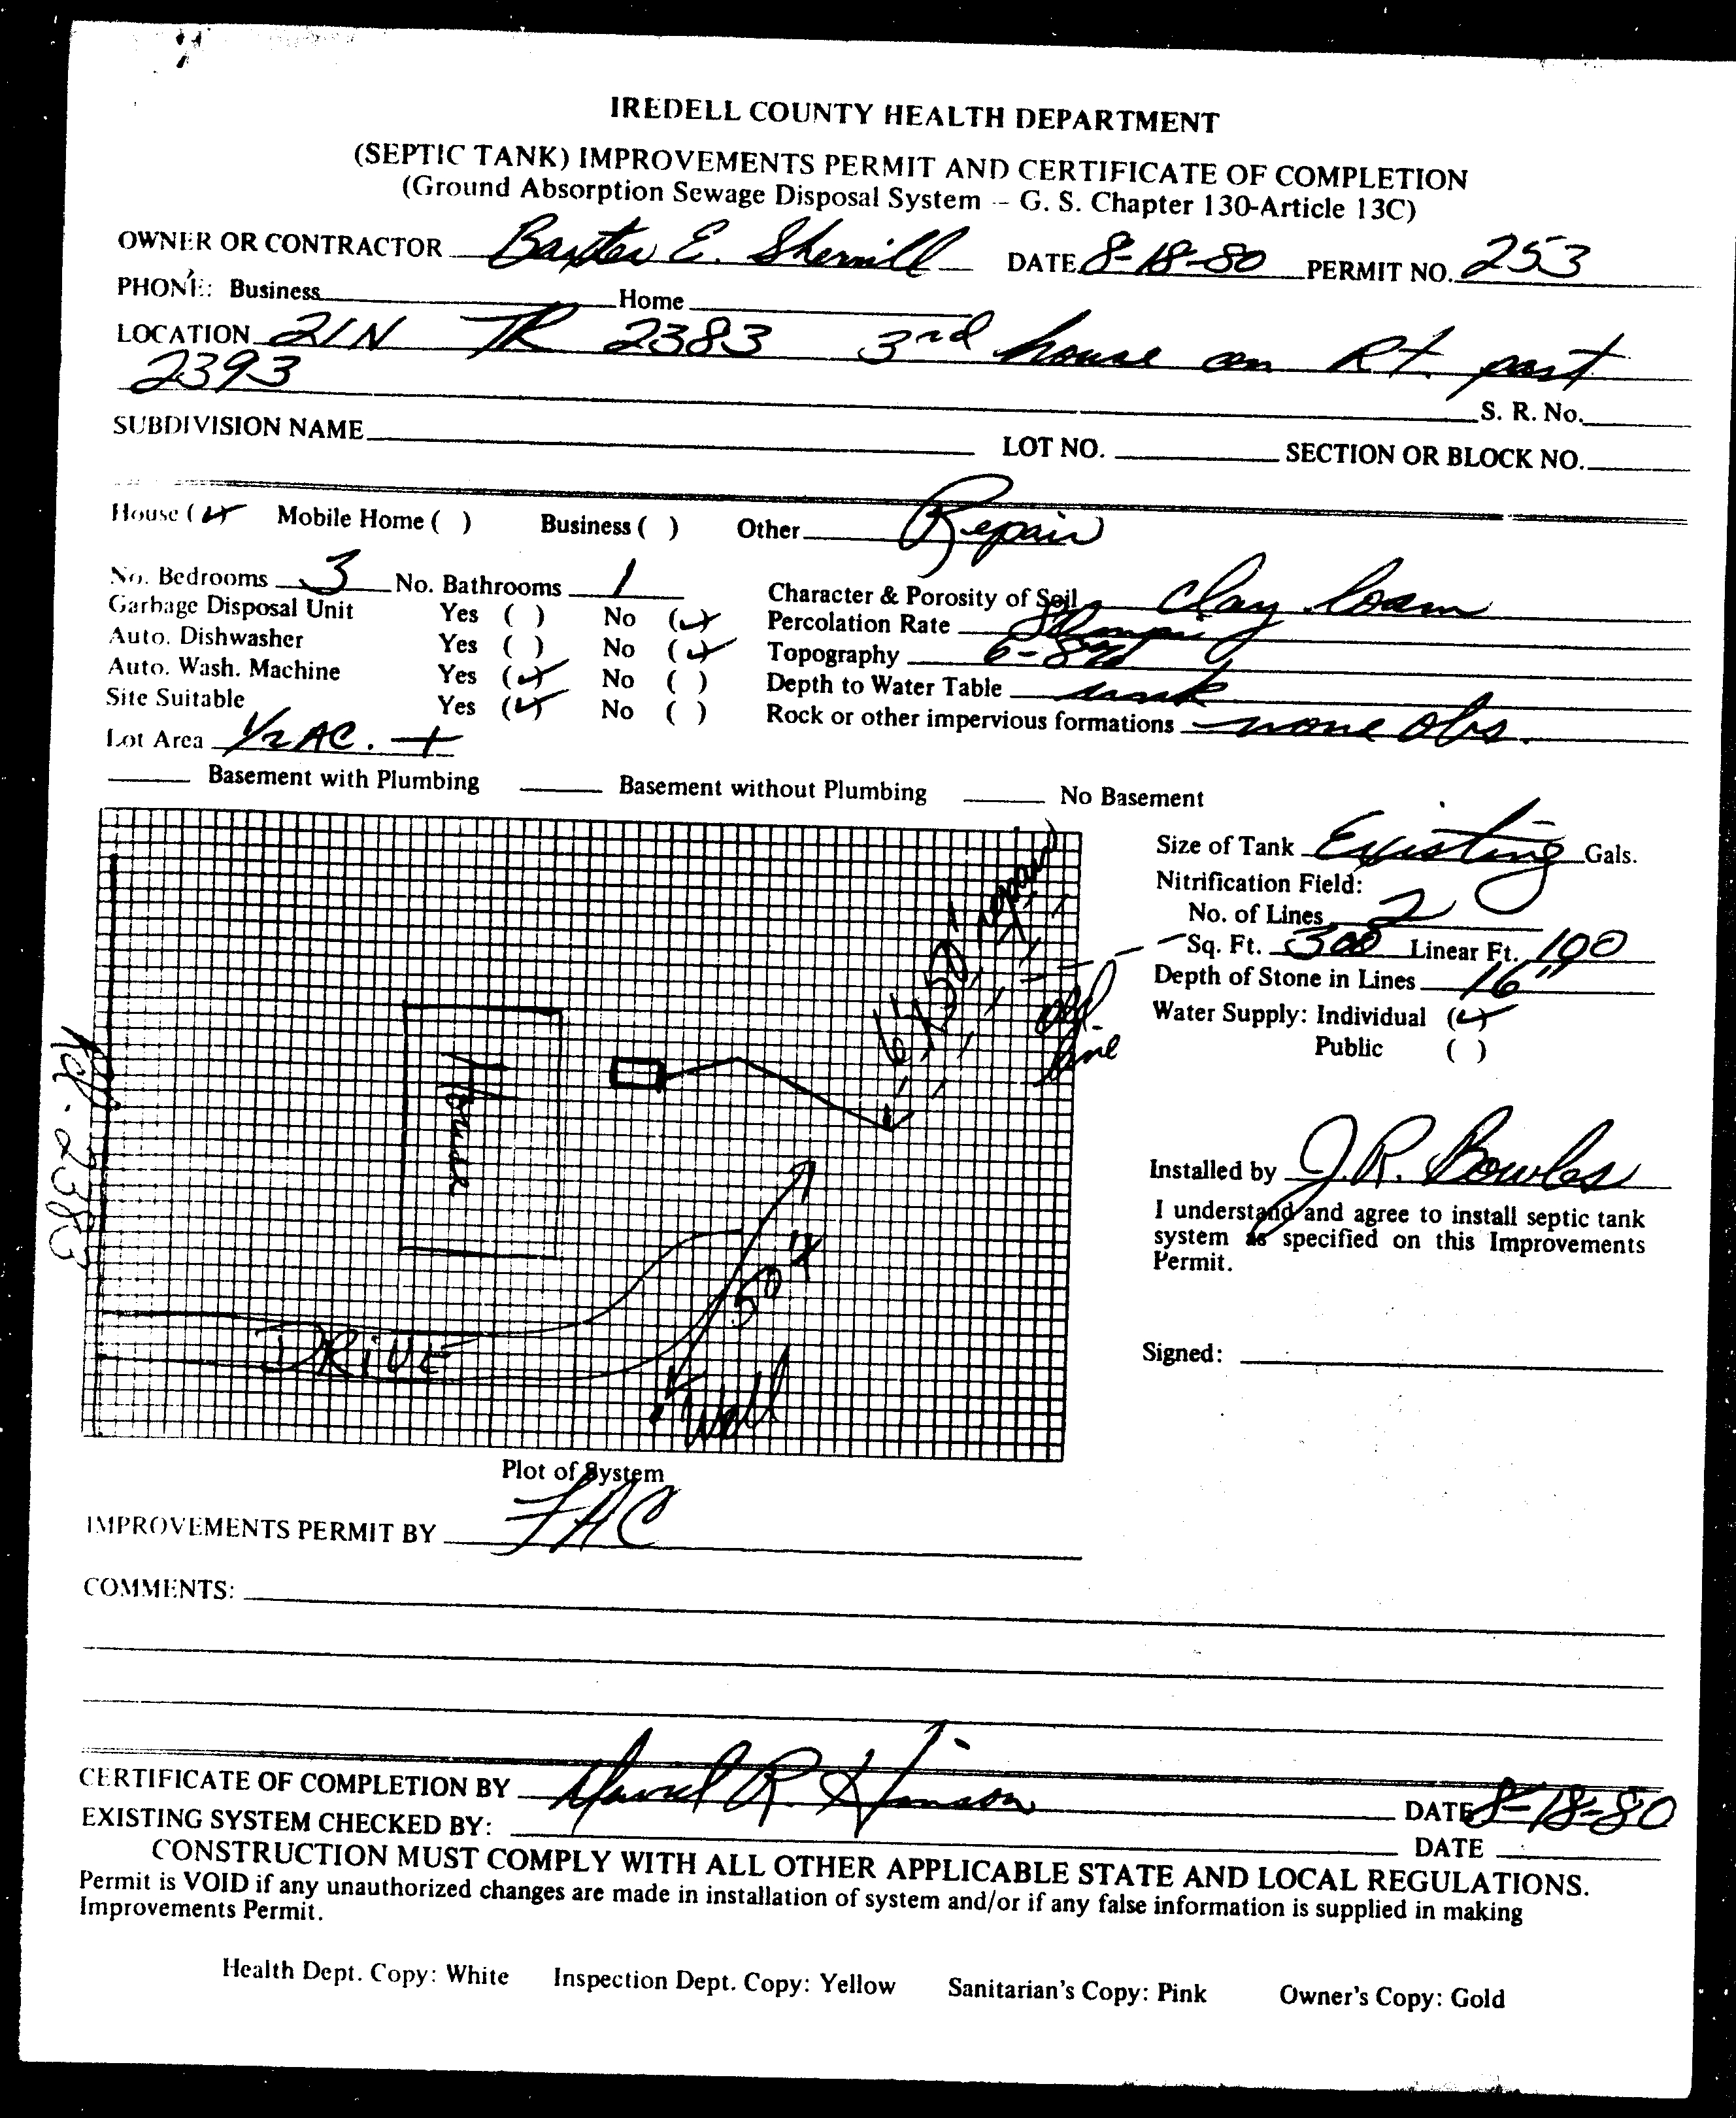 IREDELL COUNTY HEALTH DEPARTMENT
(SEPTIC TANK) IMPROVEMENTS PERMIT AND CERTIFICATE OF COMPLETION
(Ground Absorption Sewage Disposal System -- G. S. Chapter 130-Article 13C)
OWNER OR CONTRACTOR Baxter E. Sherrill DATE 8-18-80 PERMIT NO. 253
PHONE: Business Home
LOCATION 21N TR 2383 3rd house on Rt. past
2393
S. R. No.
SUBDIVISION NAME LOT NO. SECTION OR BLOCK NO.
House (✓) Mobile Home ( ) Business ( ) Other Repair
No. Bedrooms 3 No. Bathrooms 1
Garbage Disposal Unit Yes ( ) No (✓)
Auto. Dishwasher Yes ( ) No (✓)
Auto. Wash. Machine Yes (✓) No ( )
Site Suitable Yes (✓) No ( )
Lot Area 1/2 AC. +
Character & Porosity of Soil Clay loam
Percolation Rate
Topography 6-8%
Depth to Water Table
Rock or other impervious formations none obs.
Basement with Plumbing Basement without Plumbing No Basement
Size of Tank Existing Gals.
Nitrification Field:
No. of Lines 2
Sq. Ft. 300 Linear Ft. 100
Depth of Stone in Lines 16"
Water Supply: Individual (✓)
Public ( )
Installed by J.R. Bowles
I understand and agree to install septic tank
system as specified on this Improvements
Permit.
Signed:
Rd. 2383
House
repair
line
50'
DRIVE
Well
Plot of System
IMPROVEMENTS PERMIT BY FAC
COMMENTS:
CERTIFICATE OF COMPLETION BY R. DATE 8-18-80
EXISTING SYSTEM CHECKED BY: DATE
CONSTRUCTION MUST COMPLY WITH ALL OTHER APPLICABLE STATE AND LOCAL REGULATIONS.
Permit is VOID if any unauthorized changes are made in installation of system and/or if any false information is supplied in making
Improvements Permit.
Health Dept. Copy: White Inspection Dept. Copy: Yellow Sanitarian's Copy: Pink Owner's Copy: Gold